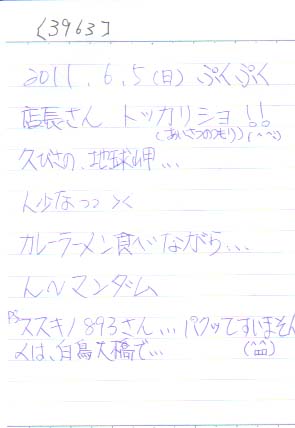 [3963]
2011.6.5(日) ぷくぷく
店長さん トッカリショ!!
(あいさつのつもり)(^-^;)
久びさの、地球岬...
人少なっっ ><
カレーラーメン食べながら...
ん〜マンダム
PSススキノ893さん... パクッてすいません
〆は、白鳥大橋で... (^皿^)